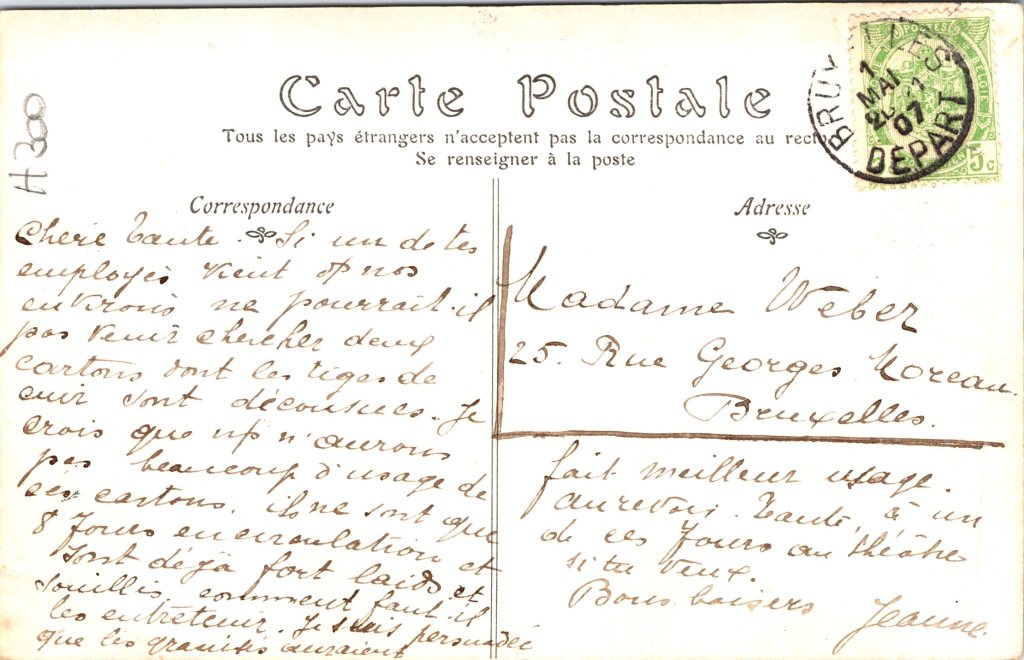 Carte Postale
Tous les pays étrangers n'acceptent pas la correspondance au recto
Se renseigner à la poste
BRUXELLES
1
MAI
07
DEPART
POSTES
BELGIQUE
5c
A 300
Correspondance
Chere Tante. Si un de tes
employés vient ds nos
environs ne pourrait-il
pas venir chercher deux
cartons dont les tiges de
cuir sont décousues. Je
crois que n'aurons
pas beaucoup d'usage de
ces cartons. ils ne sont que
8 Jours en circulation et
sont déjà fort laids et
souillis comment faut-il
les entretenir. Je suis persuadée
que les granités auraient
Adresse
Madame Weber
25. Rue Georges Moreau.
Bruxelles.
fait meilleur usage.
aurevoir Tante, à un
de ces Jours au théâtre
si tu veux.
Bons baisers Jeanne.